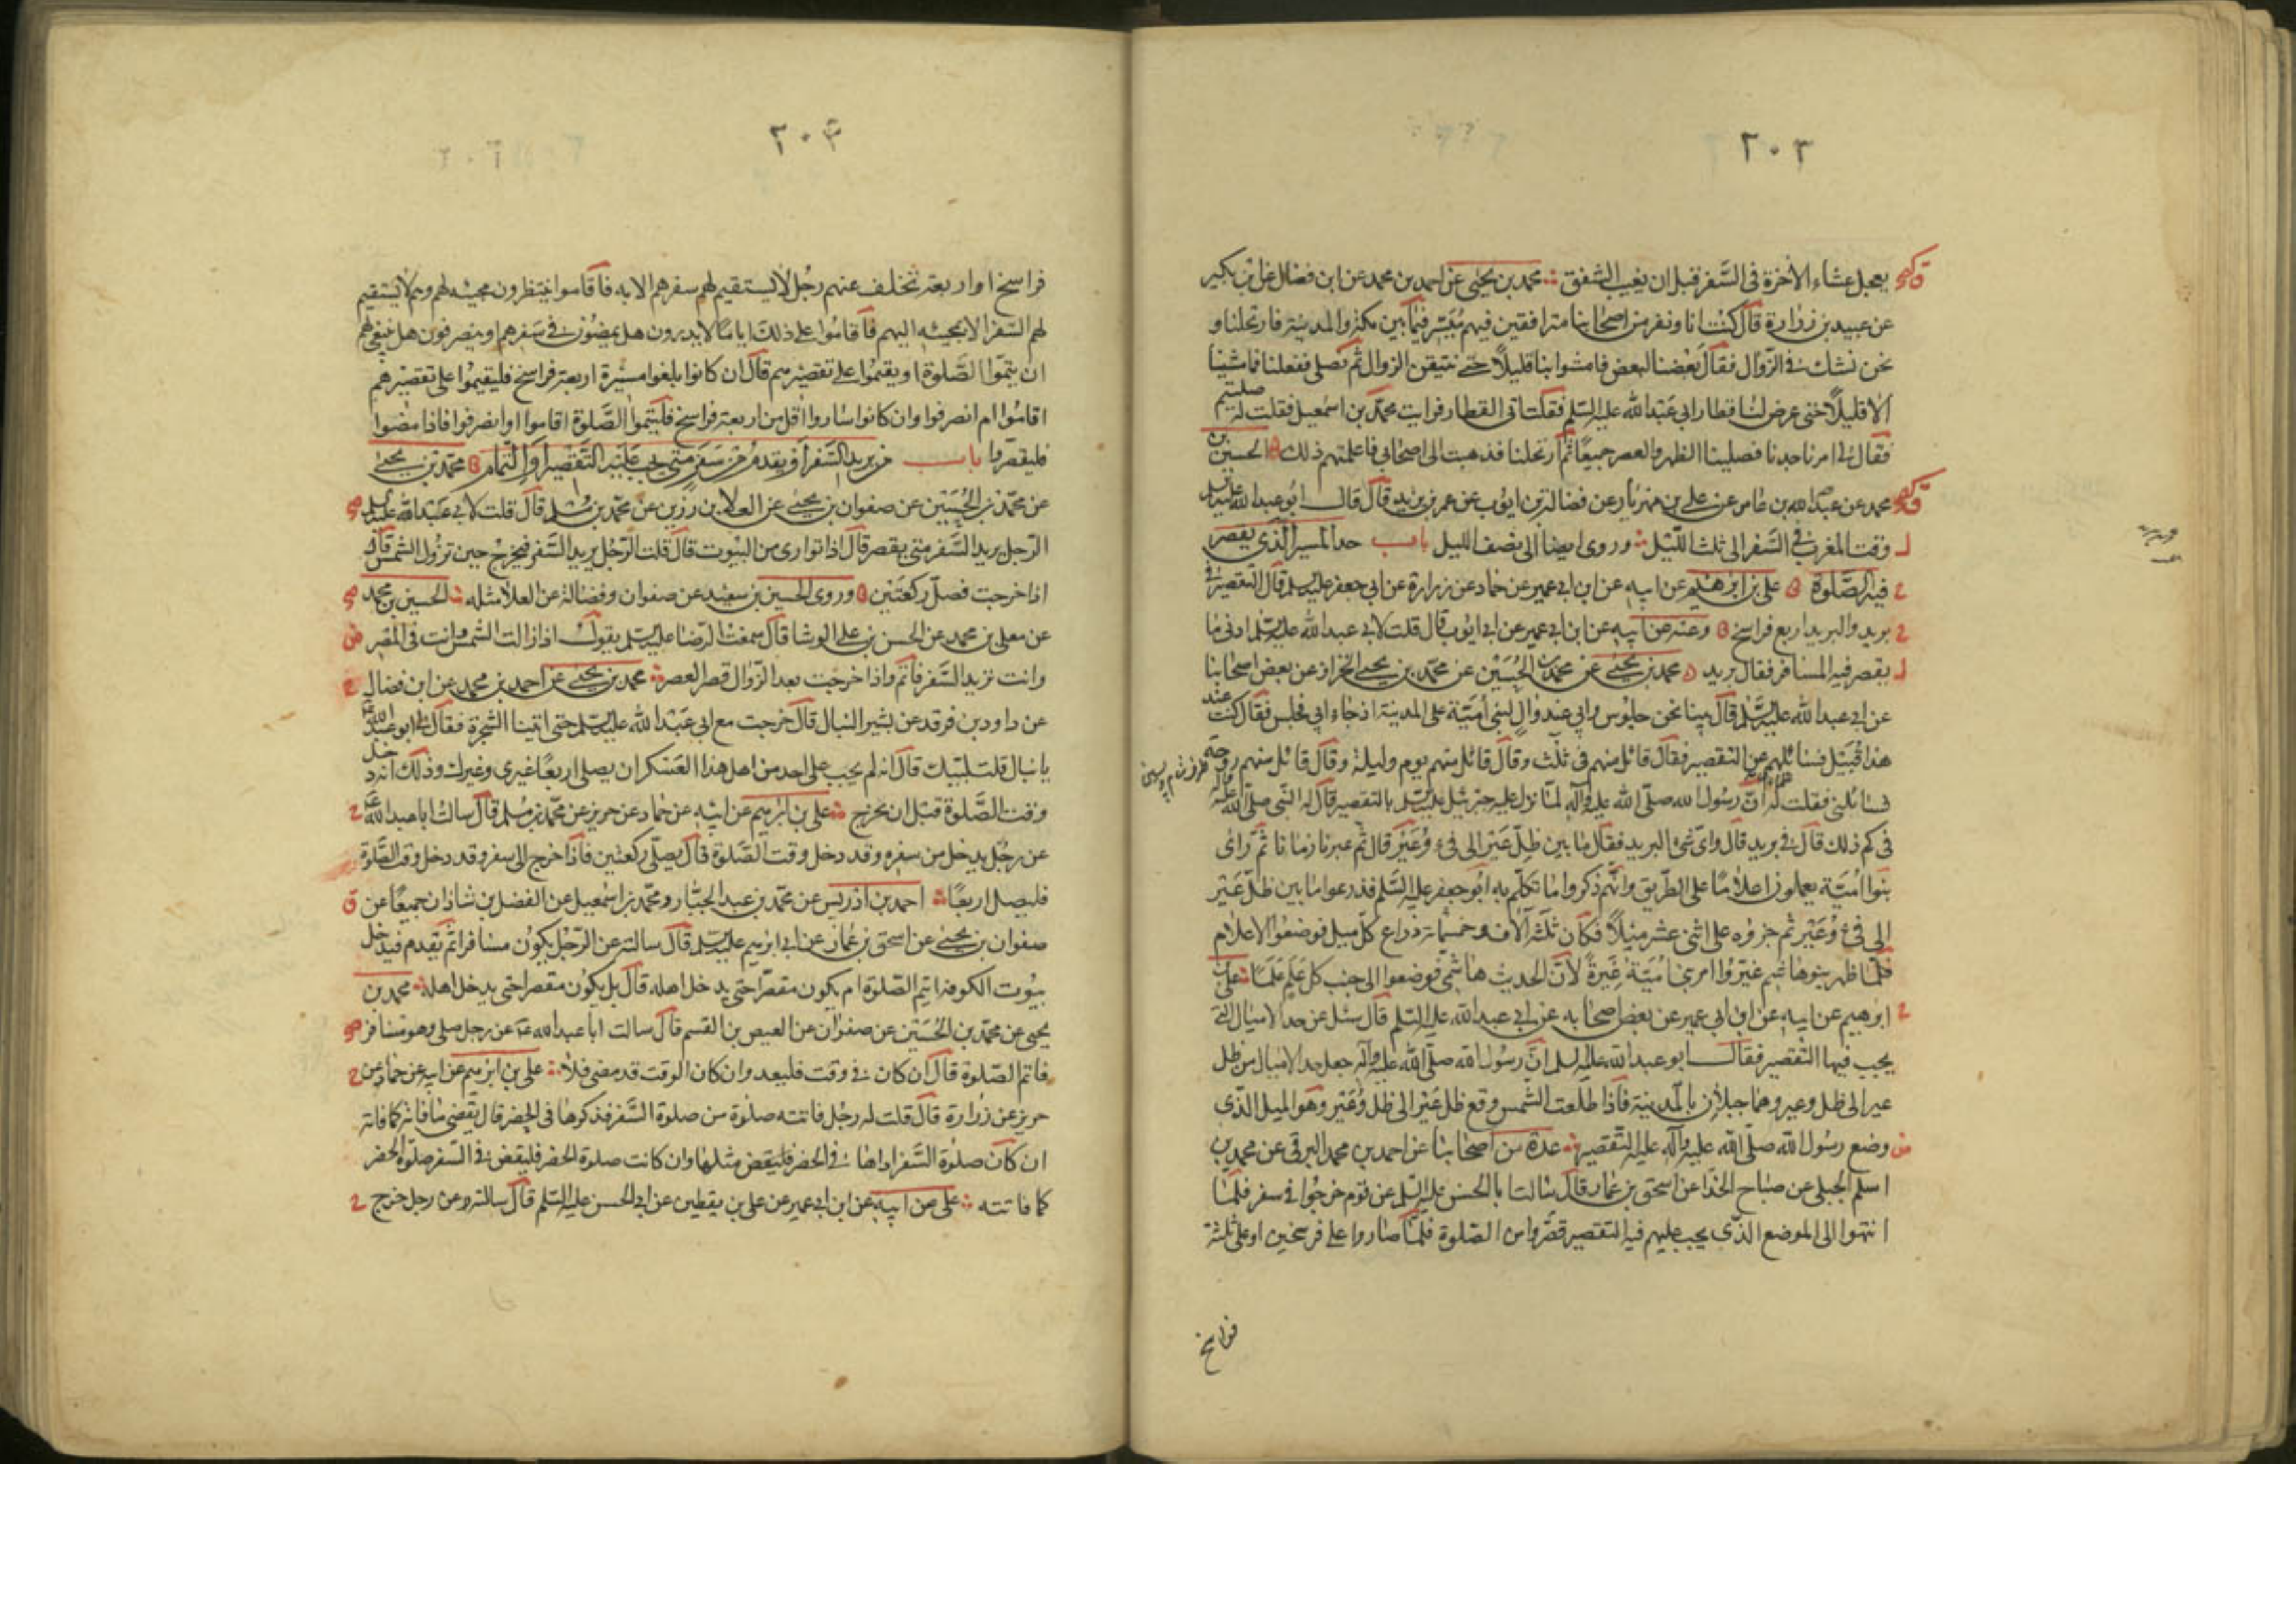 ٢٠٣
يعجل عشاء الاخرة فى السفر قبل ان يغيب الشفق محمد بن يحيى عن احمد بن محمد عن ابن فضال عن ابن بكير
عن عبيد بن زرارة قال كنت انا ونفر من اصحابنا مترافقين فيهم ميسر فيما بين مكة والمدينة فارتحلنا و
نحن نشك فى الزوال فقال بعضنا لبعض فامشوا بنا قليلا حتى نتيقن الزوال ثم نصلى ففعلنا فما مشينا
الا قليلا حتى عرض لنا قطار ابى عبد الله عليه السلم فقلت اتى القطار فرايت محمد بن اسمعيل فقلت له صليتم
فقال لى امرنا جدنا فصلينا الظهر والعصر جميعا ثم ارتحلنا فذهبت الى اصحابى فاعلمتهم ذلك الحسين بن
محمد عن عبد الله بن عامر عن على بن مهزيار عن فضالة بن ايوب عن عمر بن يزيد قال قال ابو عبد الله عليه السلم
وقت المغرب فى السفر الى ثلث الليل وروى ايضا الى نصف الليل باب حد المسير الذى يقصر
فيه الصلوة على بن ابرهيم عن ابيه عن ابن ابى عمير عن حماد عن زرارة عن ابى جعفر عليه السلم قال التقصير فى
بريد والبريد اربع فراسخ وعنه عن ابيه عن ابن ابى عمير عن ابى ايوب قال قلت لابى عبد الله عليه السلم ادنى ما
يقصر فيه المسافر فقال بريد محمد بن يحيى عن محمد بن الحسين عن محمد بن يحيى الخزاز عن بعض اصحابنا
عن ابى عبد الله عليه السلم قال بينا نحن جلوس وابى عند وال لبنى امية على المدينة اذ جاء ابى فجلس فقال كنت عند
هذا قبيل فسائلهم عن التقصير فقال قائل منهم فى ثلث وقال قائل منهم يوم وليلة وقال قائل منهم روحة
فسائلنى فقلت له ان رسول الله صلى الله عليه واله لما نزل عليه جبرئيل عليه السلم بالتقصير قال له النبى صلى الله عليه واله
فى كم ذلك قال فى بريد قال واى شىء البريد فقال ما بين ظل عير الى فىء وعير قال ثم عبرنا زمانا ثم راى
بنوا امية يعملون اعلاما على الطريق وانهم ذكروا ما تكلم به ابو جعفر عليه السلم فذرعوا ما بين ظل عير
الى فىء وعير ثم جزؤه على اثنى عشر ميلا فكان ثلثة آلاف وخمسمائة ذراع كل ميل فوضعوا الاعلام
فلما ظهر بنوهاشم غيروا امر بنى امية غيرة لان الحديث هاشمى فوضعوا الى جنب كل علم علما على بن
ابرهيم عن ابيه عن ابن ابى عمير عن بعض اصحابه عن ابى عبد الله عليه السلم قال سئل عن حد الاميال التى
يجب فيها التقصير فقال ابو عبد الله عليه السلم ان رسول الله صلى الله عليه وآله جعل حد الاميال من ظل
عير الى ظل وعير وهما جبلان بالمدينة فاذا طلعت الشمس وقع ظل عير الى ظل وعير وهو الميل الذى
وضع رسول الله صلى الله عليه وآله عليه التقصير عدة من اصحابنا عن احمد بن محمد البرقى عن محمد بن
اسلم الجبلى عن صباح الحذا عن اسحق بن عمار قال سالت ابا الحسن عليه السلم عن قوم خرجوا فى سفر فلما
انتهوا الى الموضع الذى يجب عليهم فيه التقصير قصروا من الصلوة فلما صاروا على فرسخين او على ثلثة
فراسخ
٢٠٤
فراسخ او اربعة تخلف عنهم رجل لا يستقيم لهم سفرهم الا به فاقاموا ينتظرون مجيئه لهم وهم لا يستقيم
لهم السفر الا بمجيئه اليهم فاقاموا على ذلك اياما لا يدرون هل يمضون فى سفرهم او ينصرفون هل ينبغى لهم
ان يتموا الصلوة او يقيموا على تقصيرهم قال ان كانوا بلغوا مسيرة اربعة فراسخ فليقيموا على تقصيرهم
اقاموا ام انصرفوا وان كانوا ساروا اقل من اربعة فراسخ فليتموا الصلوة اقاموا او انصرفوا فاذا مضوا
فليقصروا باب من يريد السفر او يقدم من سفر متى يجب عليه التقصير او التمام محمد بن يحيى
عن محمد بن الحسين عن صفوان بن يحيى عن العلا بن رزين عن محمد بن مسلم قال قلت لابى عبد الله عليه السلم
الرجل يريد السفر متى يقصر قال اذا توارى من البيوت قال قلت الرجل يريد السفر فيخرج حين تزول الشمس قال
اذا خرجت فصل ركعتين وروى الحسين بن سعيد عن صفوان وفضالة عن العلا مثله الحسين بن محمد
عن معلى بن محمد عن الحسن بن على الوشا قال سمعت الرضا عليه السلم يقول اذا زالت الشمس وانت فى المصر
وانت تريد السفر فاتم واذا خرجت بعد الزوال قصر العصر محمد بن يحيى عن احمد بن محمد عن ابن فضال
عن داود بن فرقد عن بشير النبال قال خرجت مع ابى عبد الله عليه السلم حتى اتينا الشجرة فقال لى ابو عبد الله
يا نبال قلت لبيك قال انه لم يجب على احد من اهل هذا العسكر ان يصلى اربعا غيرى وغيرك وذلك انه دخل
وقت الصلوة قبل ان نخرج على بن ابرهيم عن ابيه عن حماد عن حريز عن محمد بن مسلم قال سالت ابا عبد الله
عن رجل يدخل من سفره وقد دخل وقت الصلوة قال يصلى ركعتين فاذا خرج الى سفر وقد دخل وقت الصلوة
فليصل اربعا احمد بن ادريس عن محمد بن عبد الجبار ومحمد بن اسمعيل عن الفضل بن شاذان جميعا عن
صفوان بن يحيى عن اسحق بن عمار عن ابى ابرهيم عليه السلم قال سالته عن الرجل يكون مسافرا ثم يقدم فيدخل
بيوت الكوفه ايتم الصلوة ام يكون مقصرا حتى يدخل اهله قال بل يكون مقصرا حتى يدخل اهله محمد بن
يحيى عن محمد بن الحسين عن صفوان عن العيص بن القسم قال سالت ابا عبد الله عن رجل صلى وهو مسافر
فاتم الصلوة قال ان كان فى وقت فليعد وان كان الوقت قد مضى فلا على بن ابرهيم عن ابيه عن حماد عن
حريز عن زرارة قال قلت له رجل فاتته صلوة من صلوة السفر فذكرها فى الحضر قال يقضى ما فاته كما فاته
ان كان صلوة السفر اداها فى الحضر فليقض مثلها وان كانت صلوة الحضر فليقض فى السفر صلوة الحضر
كما فاتته على عن ابيه عن ابن ابى عمير عن على بن يقطين عن ابى الحسن عليه السلم قال سالته عن رجل خرج